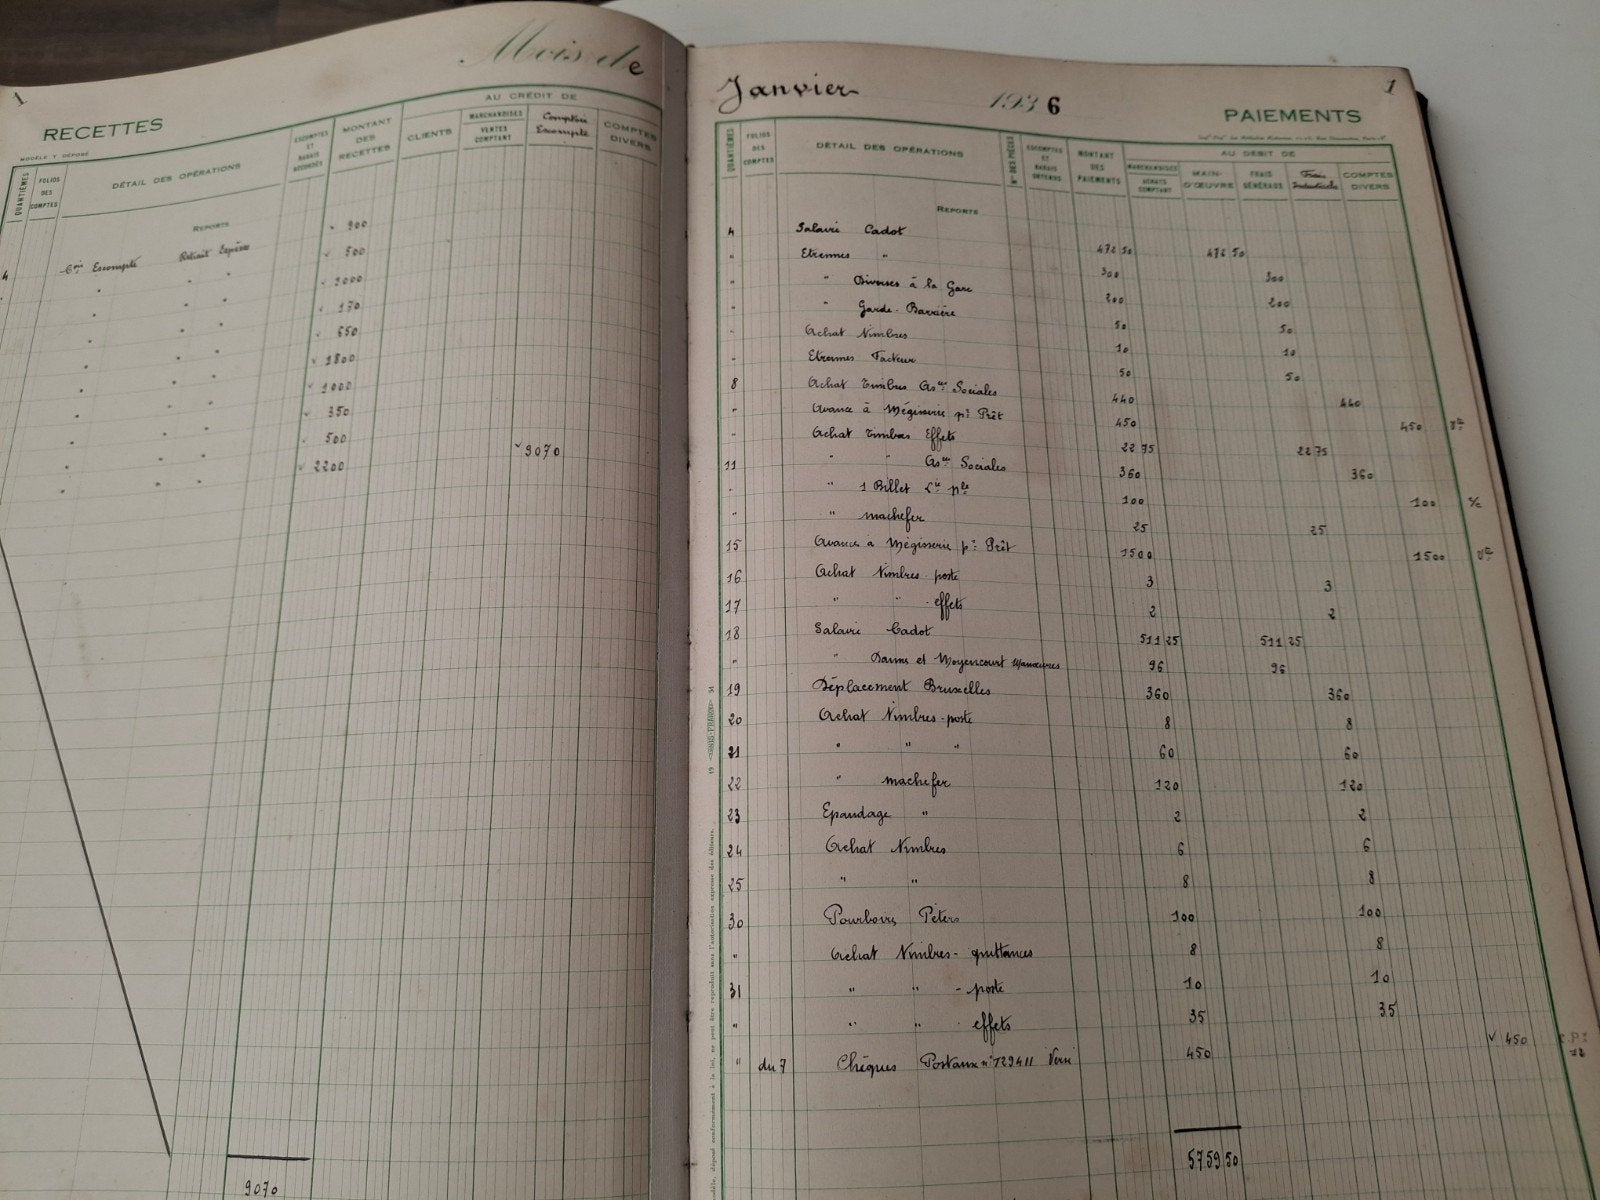 1
Mois de
RECETTES
MODÈLE T DÉPOSÉ
QUANTIÈMES
FOLIOS DES COMPTES
DÉTAIL DES OPÉRATIONS
ESCOMPTES ET RABAIS ACCORDÉS
MONTANT DES RECETTES
AU CRÉDIT DE
CLIENTS
MARCHANDISES VENTES COMPTANT
Comptoir Escompte
COMPTES DIVERS
REPORTS
4 Escompte Retrait Espèces 900
" " 500
" " 2000
" " 170
" " 650
" " 1800
" " 1000
" " 350
" " 500
" " 2200 9070
9070
Janvier 1936
1
PAIEMENTS
QUANTIÈMES
FOLIOS DES COMPTES
DÉTAIL DES OPÉRATIONS
Nos DES PIÈCES
ESCOMPTES ET RABAIS OBTENUS
MONTANT DES PAIEMENTS
AU DÉBIT DE
MARCHANDISES ACHATS COMPTANT
MAIN-D'ŒUVRE
FRAIS GÉNÉRAUX
Frais Industriels
COMPTES DIVERS
REPORTS
4 Salaire Cadot 472 50 472 50
" Etrennes " 300 300
" " Diverses à la Gare 200 200
" " Garde-Barrière 50 50
" Achat Timbres 10 10
" Etrennes Facteur 50 50
8 Achat Timbres Asces Sociales 440 440
" Avance à Mégisserie pr Prêt 450 450
" Achat Timbres Effets 22 75 22 75
11 " " Asces Sociales 360 360
" " 1 Billet 100 100
" " machefer 25 25
15 Avance à Mégisserie pr Prêt 1500 1500
16 Achat Timbres-poste 3 3
17 " " effets 2 2
18 Salaire Cadot 511 25 511 25
" " Dams et Moyencourt Manœuvres 96 96
19 Déplacement Bruxelles 360 360
20 Achat Timbres-poste 8 8
21 " " " 60 60
22 " machefer 120 120
23 Epandage " 2 2
24 Achat Timbres 6 6
25 " " 8 8
30 Pourboire Péters 100 100
" Achat Timbres-quittances 8 8
31 " " -poste 10 10
" " " effets 35 35
" du 7 Chèques Postaux n° 129411 450 450
5759 50